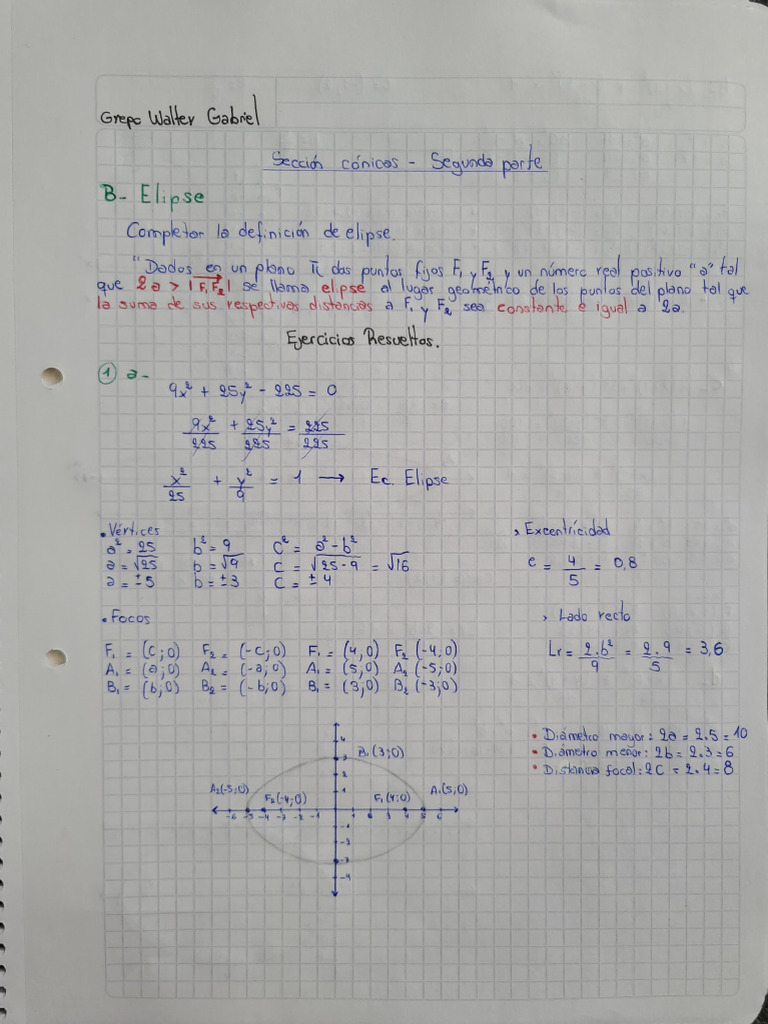 Grepo Walter Gabriel
Sección cónicas - Segunda parte
B- Elipse
Completar la definición de elipse.
"Dados en un plano π dos puntos fijos F₁ y F₂ y un número real positivo "a" tal
que 2a > |F₁F₂| se llama elipse al lugar geométrico de los puntos del plano tal que
la suma de sus respectivas distancias a F₁ y F₂ sea constante e igual a 2a.
Ejercicios Resueltos.
1 a-
9x² + 25y² - 225 = 0
9x²/225 + 25y²/225 = 225/225
x²/25 + y²/9 = 1 → Ec. Elipse
• Vértices
a² = 25 b² = 9 c² = a² - b²
a = √25 b = √9 c = √25-9 = √16
a = ±5 b = ±3 c = ±4
› Excentricidad
e = 4/5 = 0,8
• Focos
F₁ = (c;0) F₂ = (-c;0) F₁ = (4,0) F₂ (-4,0)
A₁ = (a;0) A₂ = (-a;0) A₁ = (5,0) A₂ (-5;0)
B₁ = (b;0) B₂ = (-b;0) B₁ = (3;0) B₂ (-3;0)
› Lado recto
Lr = 2.b²/9 = 2.9/5 = 3,6
• Diámetro mayor: 2a = 2.5 = 10
• Diámetro menor: 2b = 2.3 = 6
• Distancia focal: 2C = 2.4 = 8
4
3
B₁(3;0)
2
1
A₂(-5;0) F₂(-4;0) F₁(4;0) A₁(5;0)
-6 -5 -4 -3 -2 -1 1 2 3 4 5 6
-1
-2
-3
-4